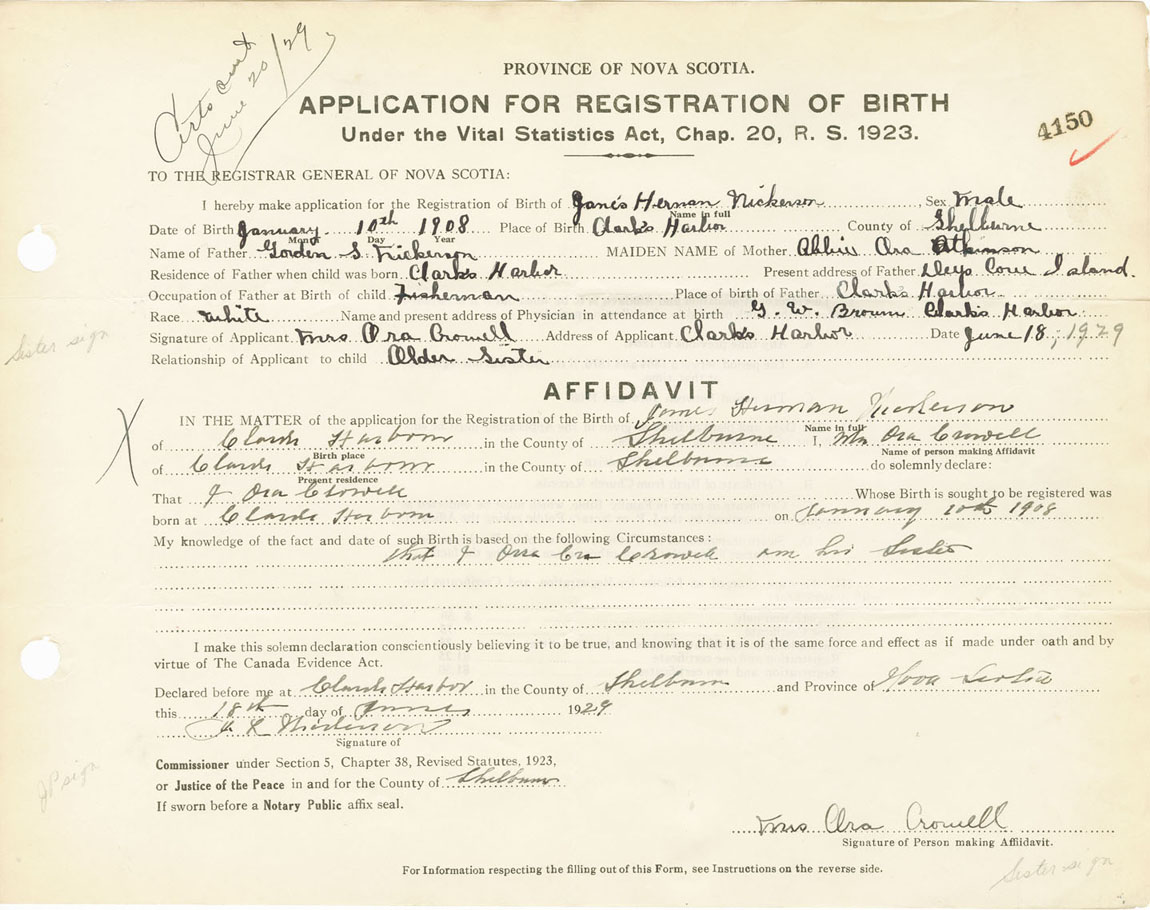 June 20/29
PROVINCE OF NOVA SCOTIA.
APPLICATION FOR REGISTRATION OF BIRTH
Under the Vital Statistics Act, Chap. 20, R. S. 1923.
4150
TO THE REGISTRAR GENERAL OF NOVA SCOTIA:
I hereby make application for the Registration of Birth of James Herman Nickerson Sex male
Name in full
Date of Birth January 10th 1908 Place of Birth Clark's Harbor County of Shelburne
Month Day Year
Name of Father Gorden S. Nickerson MAIDEN NAME of Mother Abbie Ora Atkinson
Residence of Father when child was born Clark's Harbor Present address of Father Island.
Occupation of Father at Birth of child Fisherman Place of birth of Father Clark's Harbor
Race white Name and present address of Physician in attendance at birth G. W. Brown Clark's Harbor
Sister sign
Signature of Applicant Mrs Ora Crowell Address of Applicant Clark's Harbor Date June 18, 1929
Relationship of Applicant to child Older Sister
AFFIDAVIT
X
IN THE MATTER of the application for the Registration of the Birth of James Herman Nickerson
Name in full
of Clarks Harbour in the County of Shelburne I, Mrs Ora Crowell
Birth place Name of person making Affidavit
of Clarks Harbour in the County of Shelburne do solemnly declare:
Present residence
That I Ora Crowell Whose Birth is sought to be registered was
born at Clarks Harbour on January 10th 1908
My knowledge of the fact and date of such Birth is based on the following Circumstances:
that I Crowell am his Sister
I make this solemn declaration conscientiously believing it to be true, and knowing that it is of the same force and effect as if made under oath and by
virtue of The Canada Evidence Act.
Declared before me at Clarks Harbor in the County of Shelburne and Province of Nova Scotia
this 18th day of June 1929
Nickerson
Signature of
Commissioner under Section 5, Chapter 38, Revised Statutes, 1923,
JP sign
or Justice of the Peace in and for the County of Shelburne
If sworn before a Notary Public affix seal.
Mrs Ora Crowell
Signature of Person making Affidavit.
For Information respecting the filling out of this Form, see Instructions on the reverse side.
Sister sign